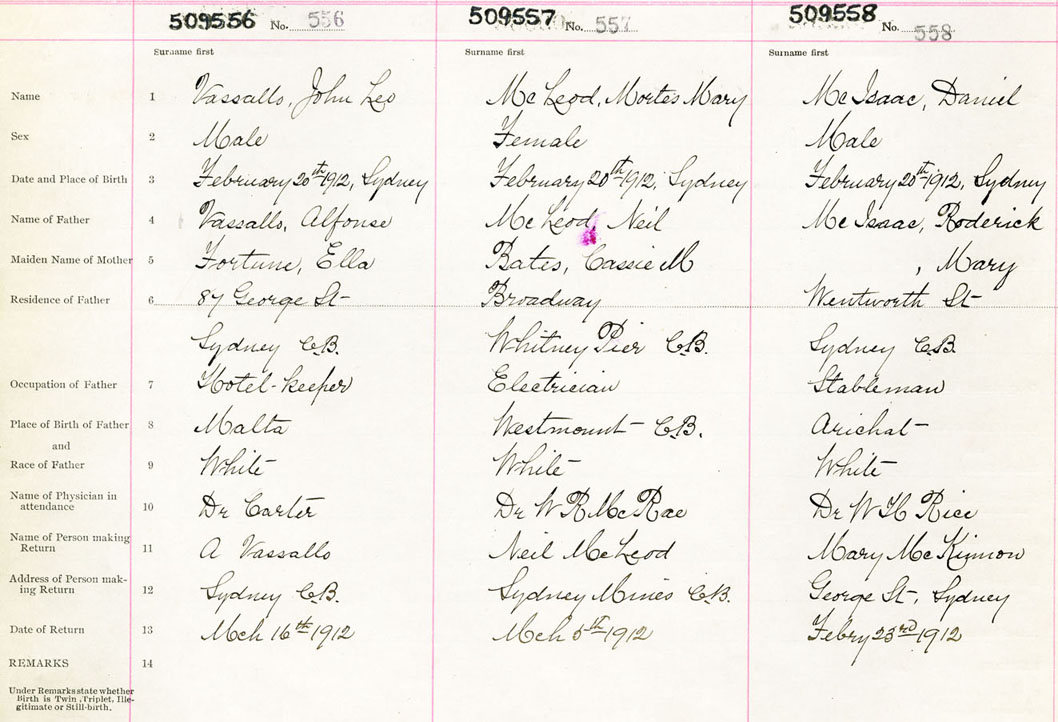 509556 No. 556 509557 No. 557 509558 No. 558
Surname first Surname first Surname first
Name 1 Vassallo, John Leo McLeod, Mortes Mary McIsaac, Daniel
Sex 2 Male Female Male
Date and Place of Birth 3 February 20th 1912, Sydney February 20th 1912, Sydney February 20th 1912, Sydney
Name of Father 4 Vassallo, Alfonse McLeod, Neil McIsaac, Roderick
Maiden Name of Mother 5 Fortune, Ella Bates, Cassie M , Mary
Residence of Father 6 87 George St Broadway Wentworth St
Sydney C.B. Whitney Pier C.B. Sydney C.B.
Occupation of Father 7 Hotel-keeper Electrician Stableman
Place of Birth of Father 8 Malta Westmount C.B. Arichat
and
Race of Father 9 White White White
Name of Physician in
attendance 10 Dr Carter Dr W R McRae Dr W H Rice
Name of Person making
Return 11 A Vassallo Neil McLeod Mary McKinnon
Address of Person mak-
ing Return 12 Sydney C.B. Sydney Mines C.B. George St, Sydney
Date of Return 13 Mch 16th 1912 Mch 5th 1912 Febry 23rd 1912
REMARKS 14
Under Remarks state whether
Birth is Twin, Triplet, Ille-
gitimate or Still-birth.